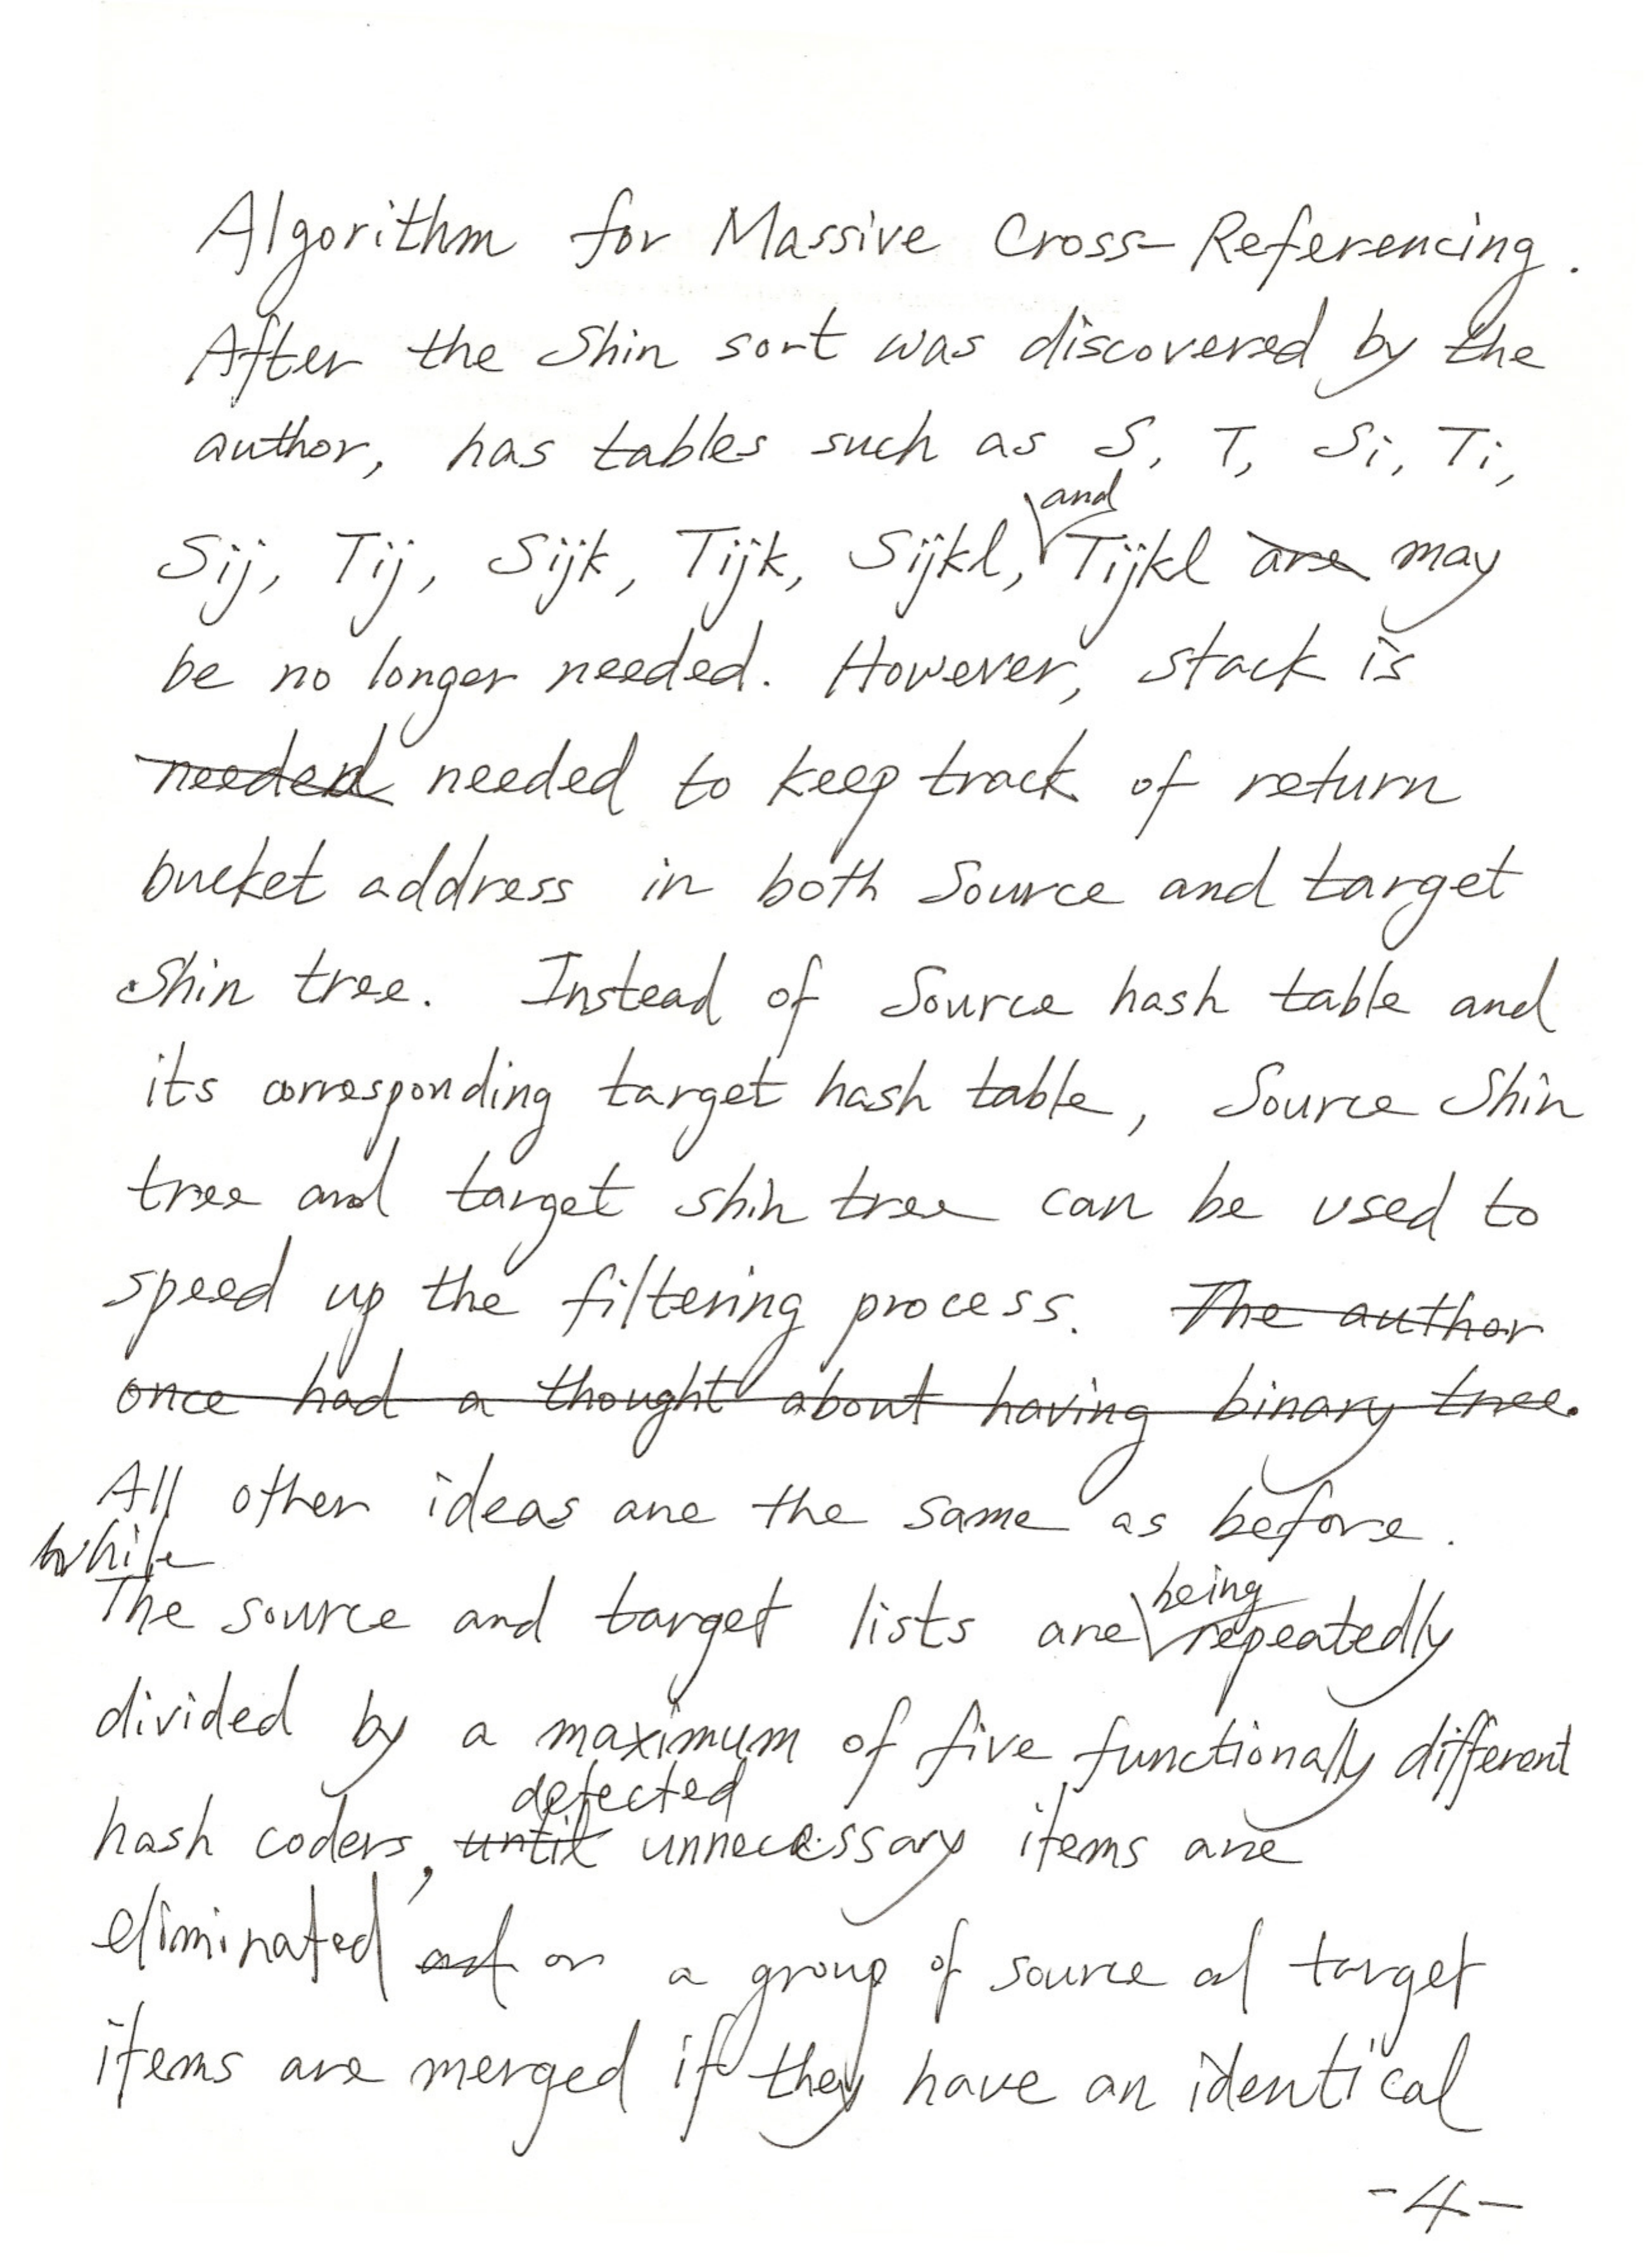 Algorithm for Massive Cross-Referencing.
After the Shin sort was discovered by the
author, has tables such as S, T, Si, Ti,
and
Sij, Tij, Sijk, Tijk, Sijkl, Tijkl are may
be no longer needed. However, stack is
needed needed to keep track of return
bucket address in both Source and target
Shin tree. Instead of Source hash table and
its corresponding target hash table, Source Shin
tree and target shin tree can be used to
speed up the filtering process. The author
once had a thought about having binary tree.
All other ideas are the same as before.
While
being
The source and target lists are repeatedly
divided by a maximum of five functionally different
detected
hash coders, until unnecessary items are
eliminated and or a group of source and target
items are merged if they have an identical
-4-